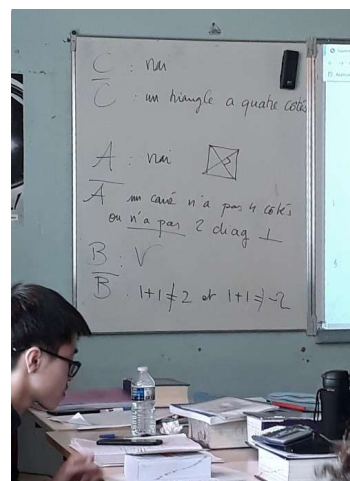 C : vrai
C̅ : un triangle a quatre cotés
A : vrai
A̅ un carré n'a pas 4 côtés
ou n'a pas 2 diag ⊥
B : V
B̅ : 1+1≠2 et 1+1≠-2